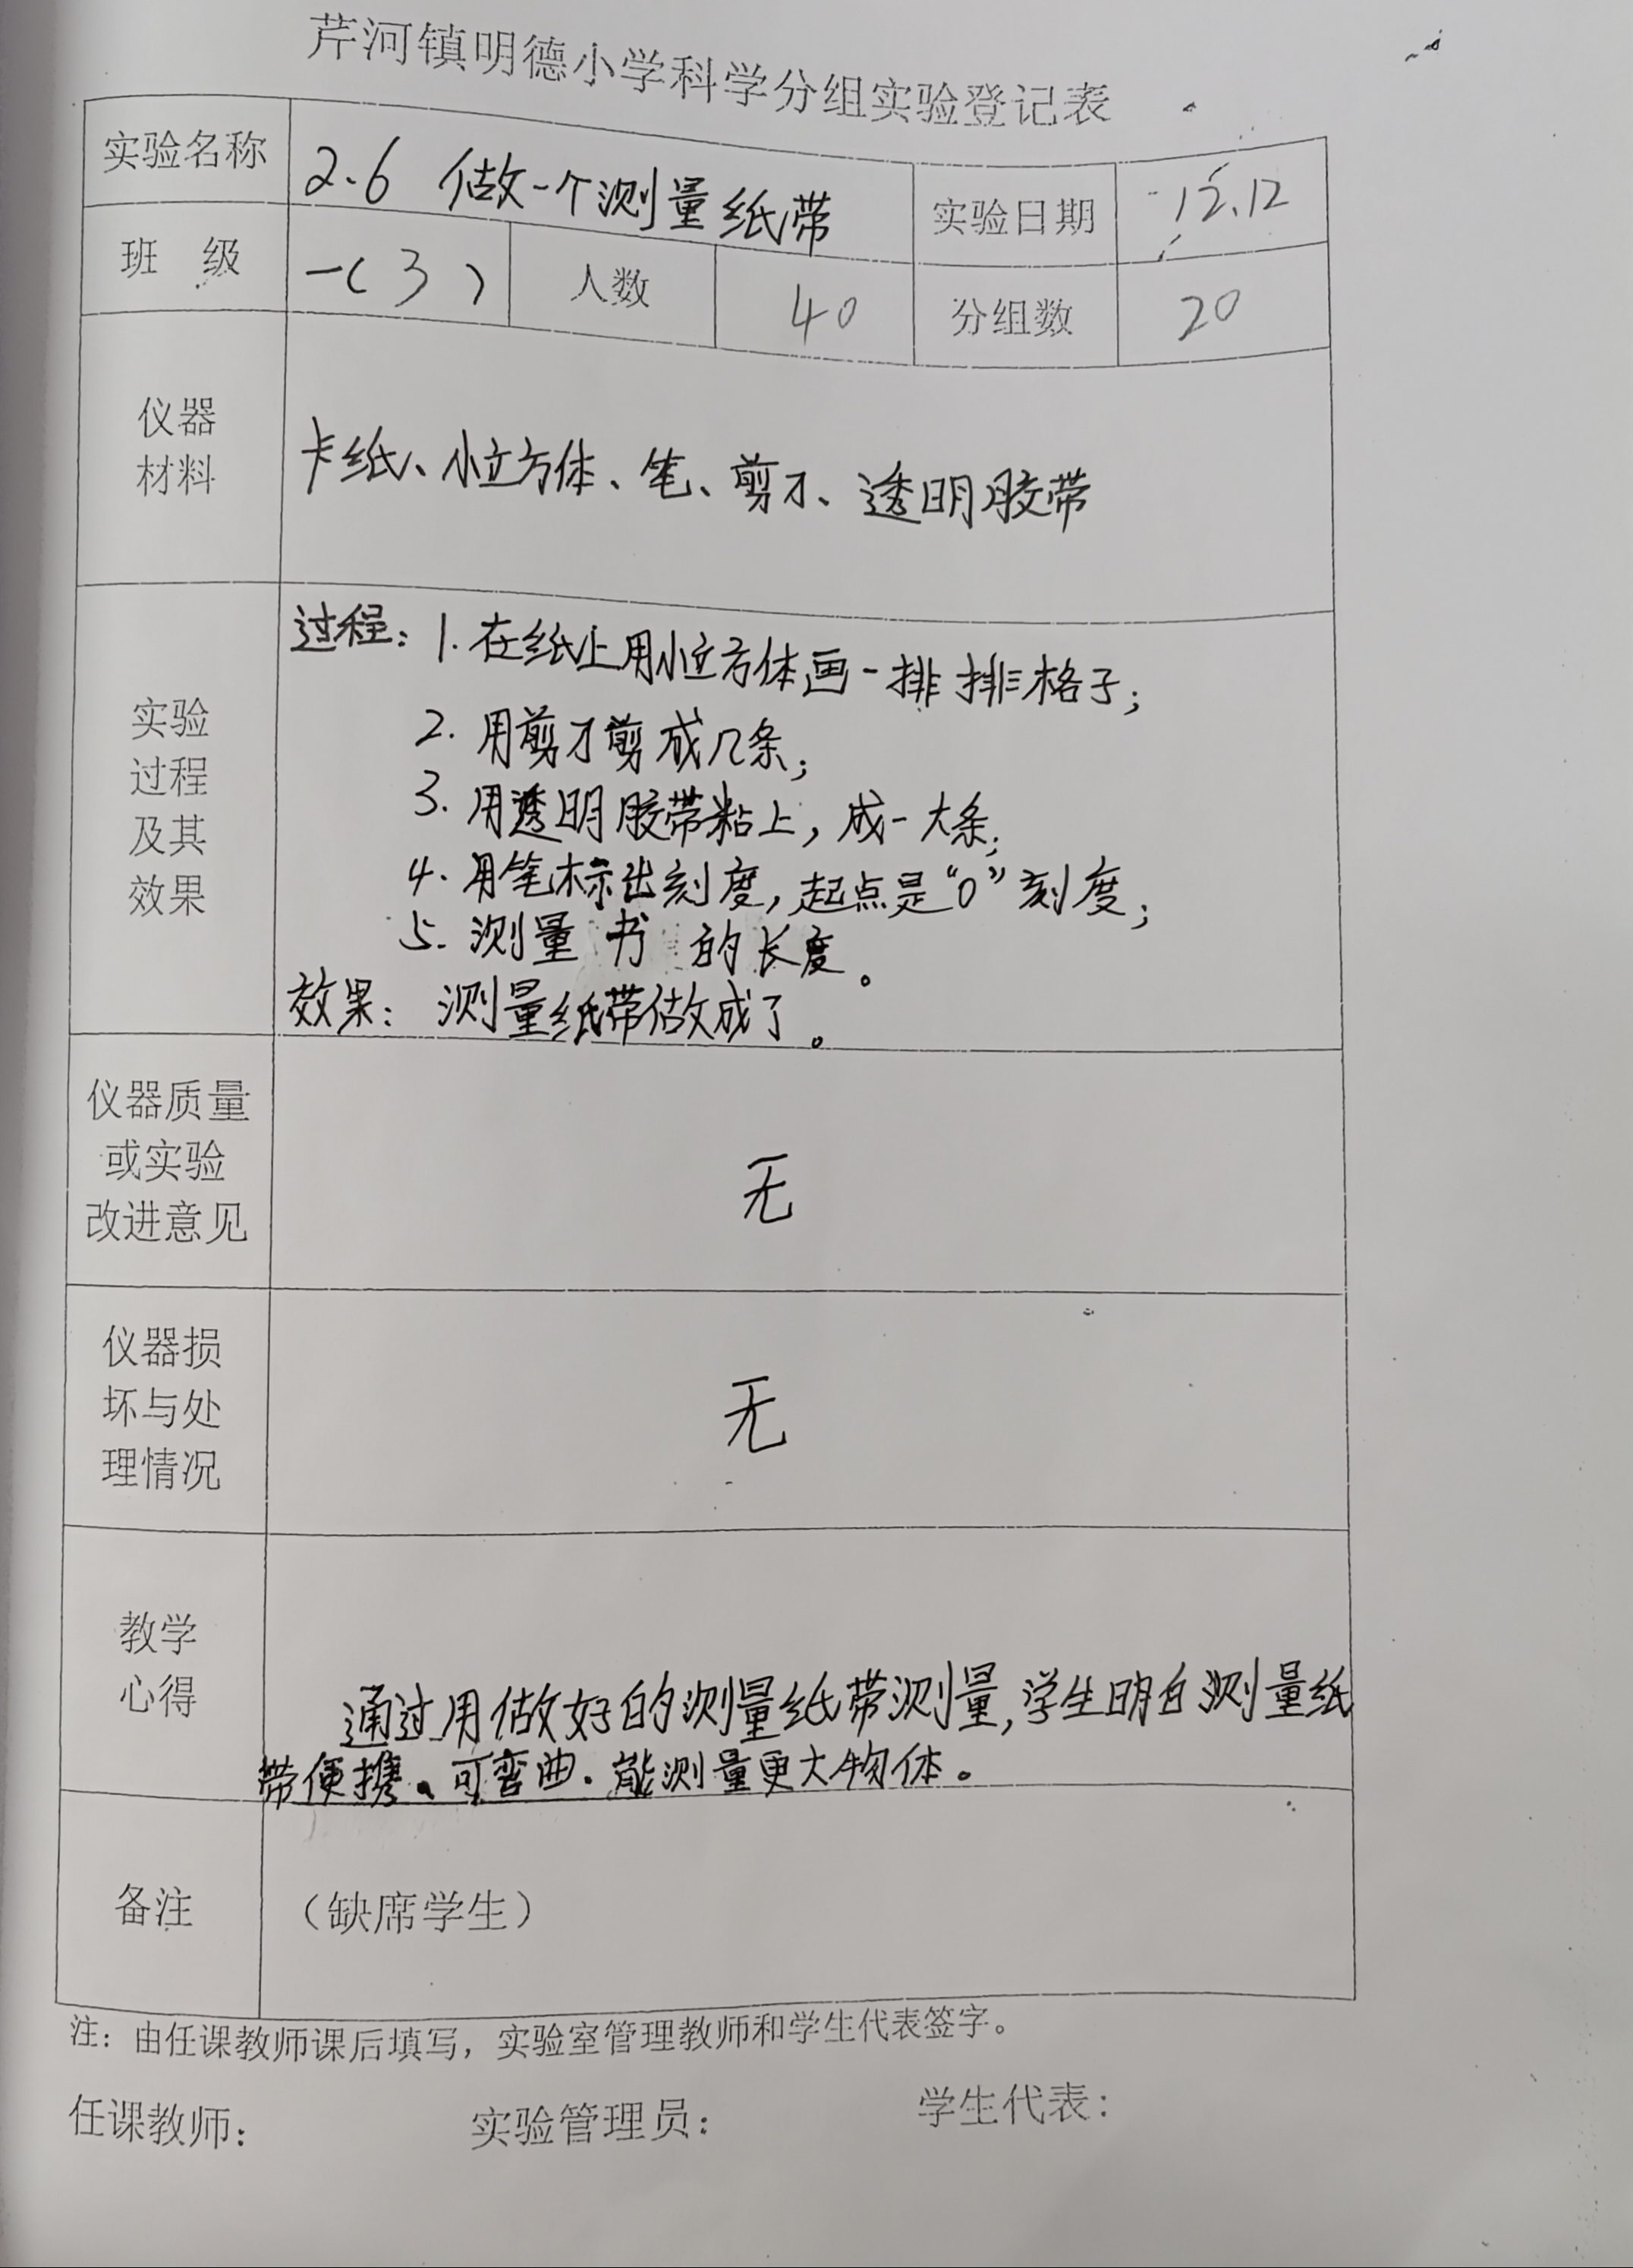 芹河镇明德小学科学分组实验登记表
实验名称 2.6 做一个测量纸带 实验日期 12.12
班 级 一(3) 人数 40 分组数 20
仪器
材料
卡纸、小立方体、笔、剪刀、透明胶带
实验
过程
及其
效果
过程：1.在纸上用小立方体画一排排格子；
2.用剪刀剪成几条；
3.用透明胶带粘上，成一大条；
4.用笔标出刻度，起点是“0”刻度；
5.测量书的长度。
效果：测量纸带做成了。
仪器质量
或实验
改进意见
无
仪器损
坏与处
理情况
无
教学
心得
通过用做好的测量纸带测量，学生明白测量纸
带便携、可弯曲．能测量更大物体。
备注
（缺席学生）
注：由任课教师课后填写，实验室管理教师和学生代表签字。
任课教师： 实验管理员： 学生代表：